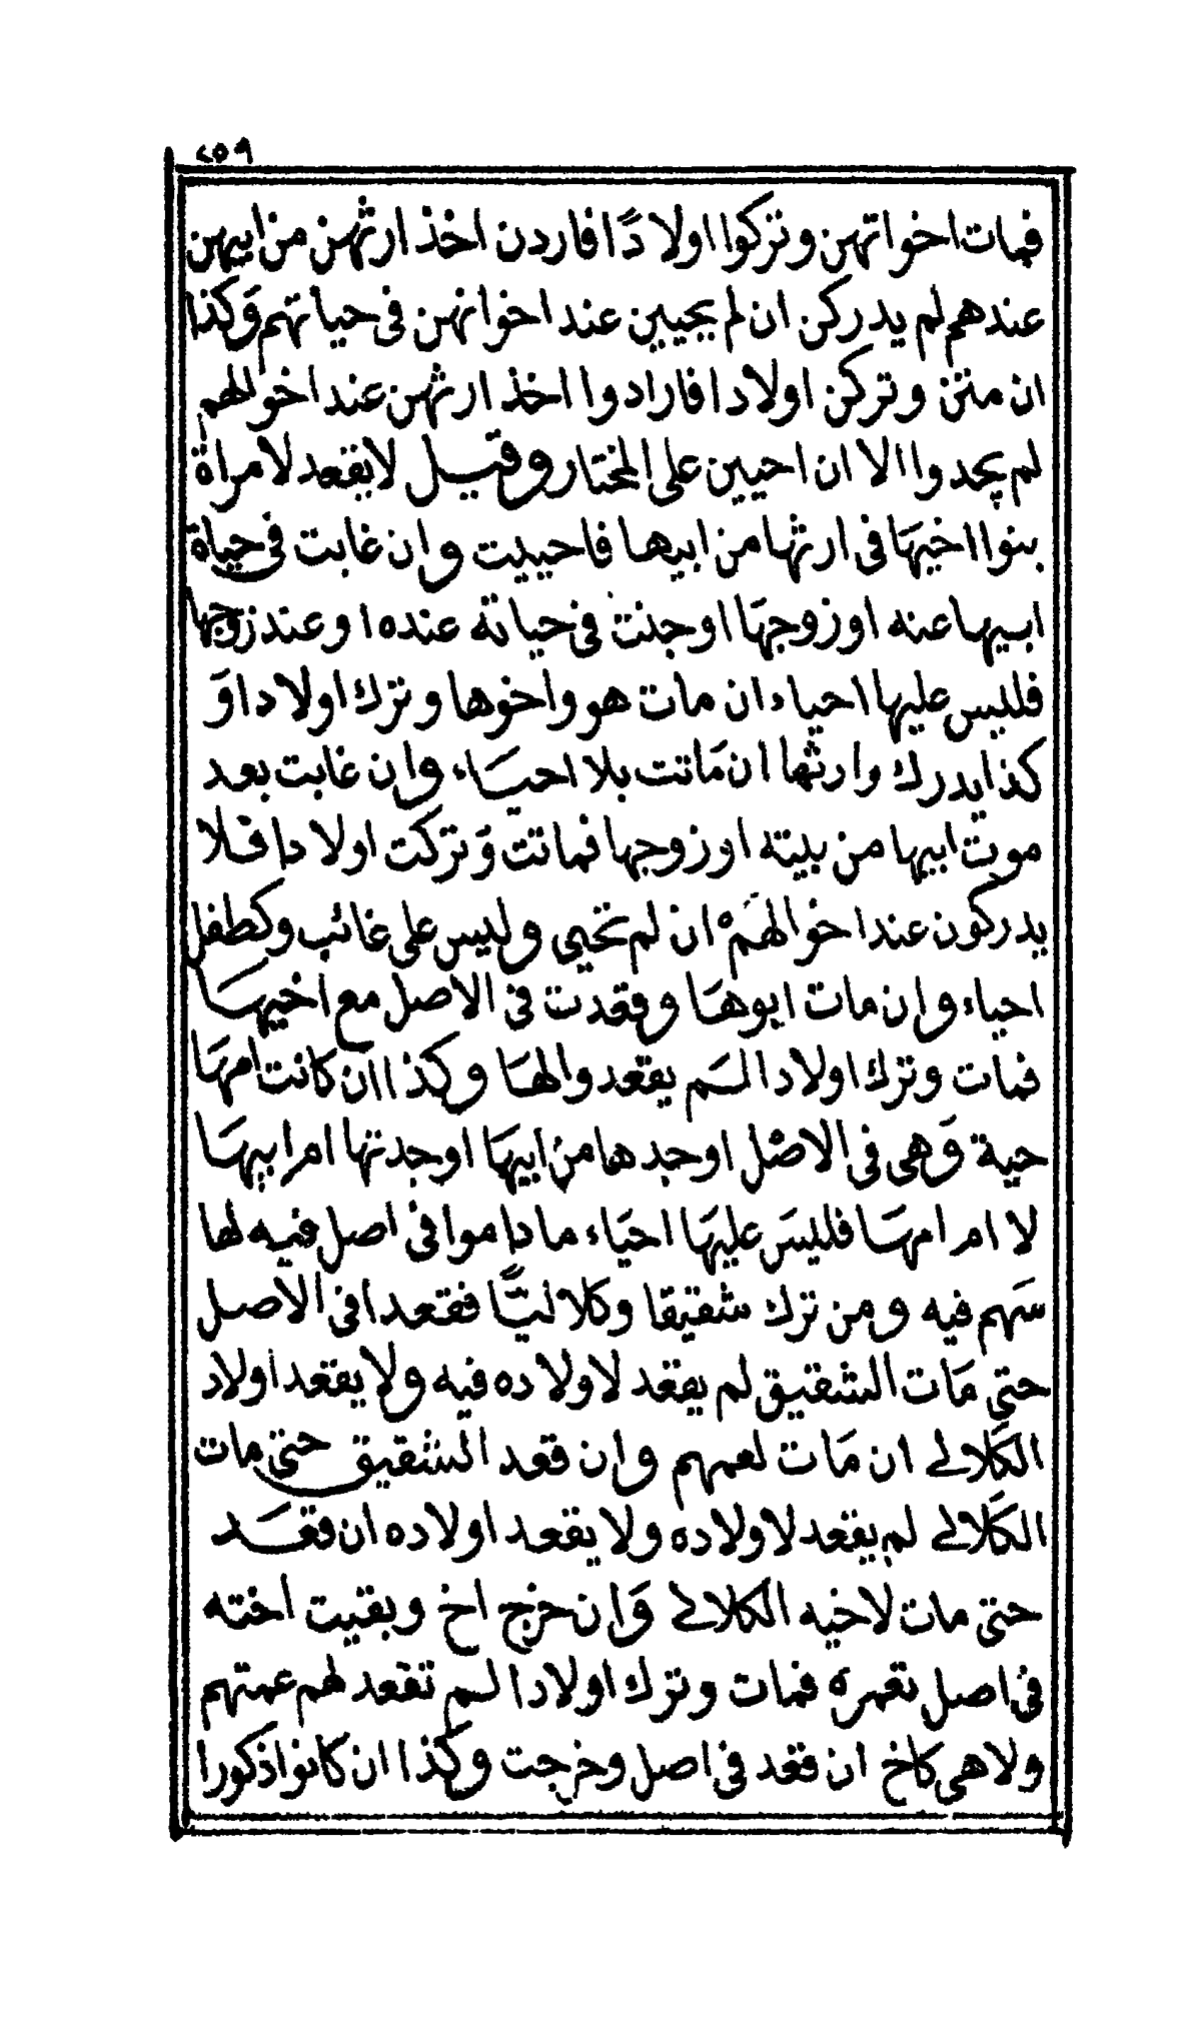 ٢٥٩
فمات اخواتهن وتركوا اولادًا فاردن اخذ ارثهن من ابيهن
عندهم لم يدركن ان لم يحيين عند اخوانهن فى حياتهم وَكذا
ان متن وتركن اولادا فارادوا اخذ ارثهن عند اخوالهم
لم يجدوا الا ان احيين على المختار وقيل لا يقعد لامراة
بنوا اخيهَا فى ارثها من ابيها فاحييت وان غابت فى حياة
ابيها عنه او زوجهَا او جنت فى حياته عنده او عند زوجها
فليس عليها احياء ان مات هو واخوها وترك اولادا وَ
كذا يدرك وارثها ان مَاتت بلا احيَاء وان غابت بعد
موت ابيها من بيته او زوجها فماتت وَتركت اولادا فلا
يدركون عند اخوالهَمْ ان لم تحيى وليس على غائب وكطفل
احياء وان مات ابوهَا وقعدت فى الاصل مع اخيهَا
فمات وترك اولادا لم يقعد والهَا وكذا ان كانت امهَا
حية وَهى فى الاصْل او جدها منْ ابيهَا او جدتها ام ابيهَا
لا ام امهَا فليسَ عليهَا احيَاء ما داموا فى اصل فيه لها
سَهم فيه ومن ترك شقيقا وكلاليًّا فقعدا فى الاصل
حتى مَات الشقيق لم يقعد لاولاده فيه ولا يقعد اولاد
الكَلالى ان مَات لعمهم وان قعد الشقيق حتى مات
الكَلالى لم يقعد لاولاده ولا يقعد اولاده ان قعَد
حتى مات لاخيه الكلالى وَان خرج اخ وبقيت اخته
فى اصل تعمره فمات وترك اولادا لم تقعد لهم عمتهم
ولا هى كاخ ان قعد فى اصل وخرجت وكذا ان كانوا ذكورا